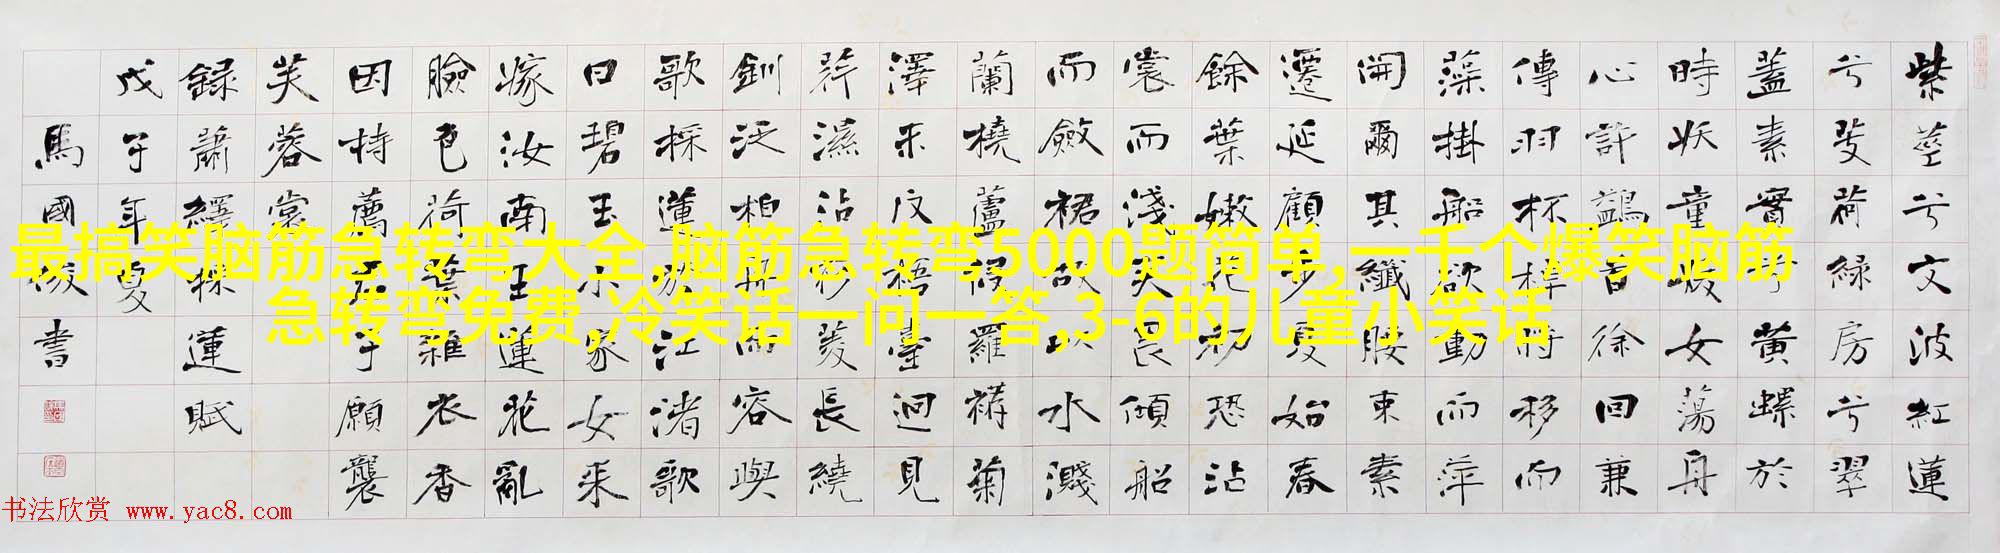 紫莖兮文波紅蓮
兮芰荷綠房兮翠
蓋素實兮黃螺於
時妖童媛女蕩舟
心許鷁首徐回兼
傳羽杯棹將移而
藻掛船欲動而萍
開爾其纖腰束素
遷延顧步夏始春
餘葉嫩花初恐沾
裳而淺笑畏傾船
而斂裾故以水濺
蘭橈蘆侵羅褥菊
澤未反梧臺迥見
荇濕沾衫菱長繞
釧泛柏舟而容與
歌採蓮於江渚歌
曰碧玉小家女来
嫁汝南王蓮花亂
臉色荷葉雜衣香
因持薦君子願襲
芙蓉裳
錄蕭繹採蓮賦
戊子年夏
馬國俊書
最搞笑脑筋急转弯大全,脑筋急转弯5000题简单,一千个爆笑脑筋
急转弯免费,冷笑话一问一答,3-6的儿童小笑话
书法欣赏 www.yac8.com